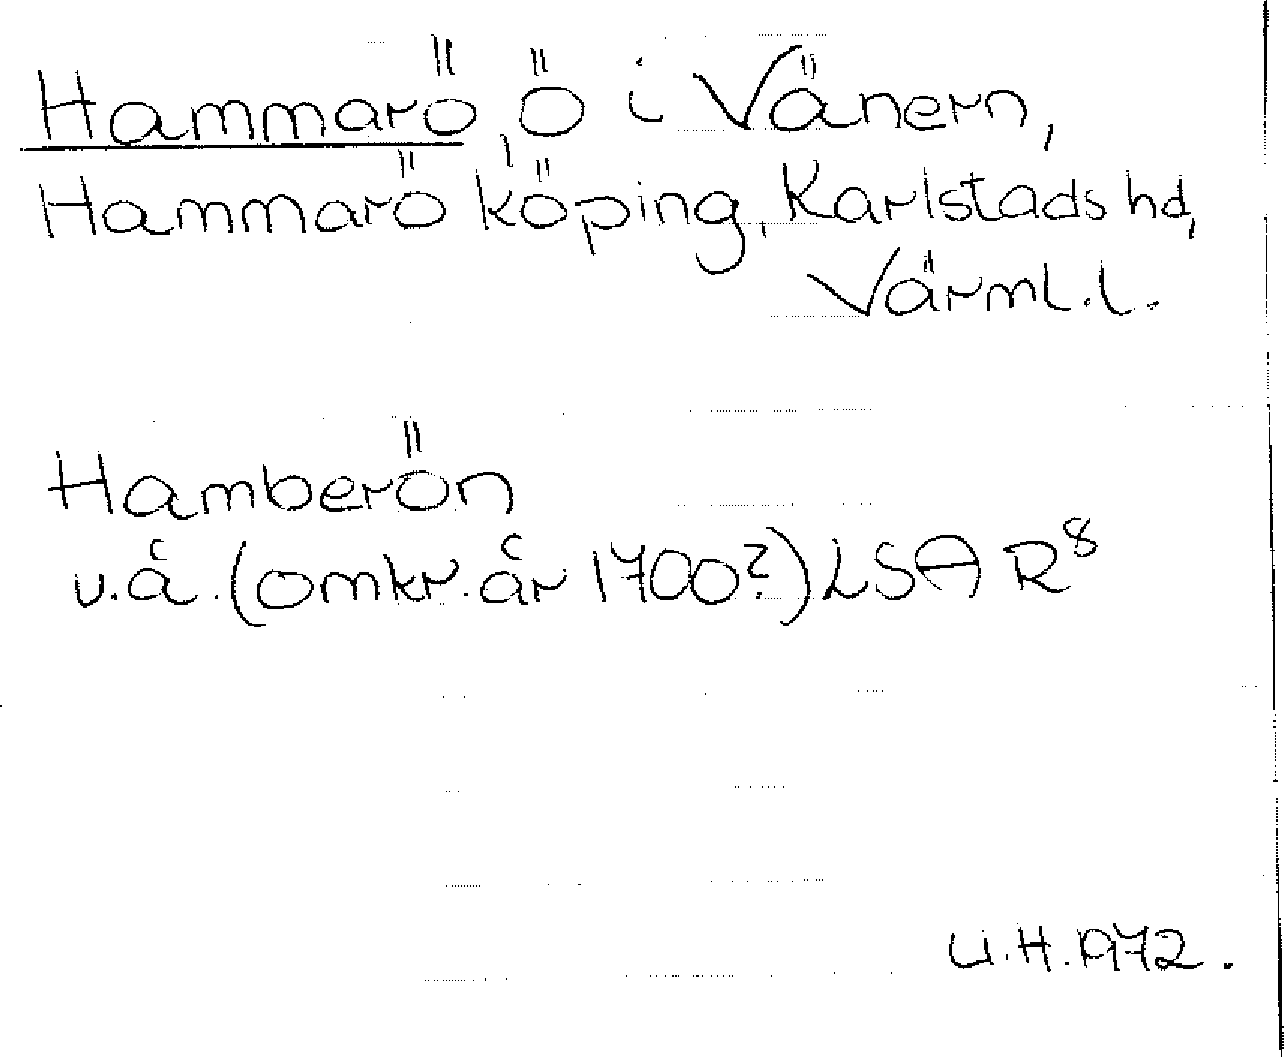 Hammarö, ö i Vänern,
Hammarö köping, Karlstads hd,
Värml.l.
Hamberön
u.å. (omkr. år 1700?) LSA R⁸
U.H. 1972.